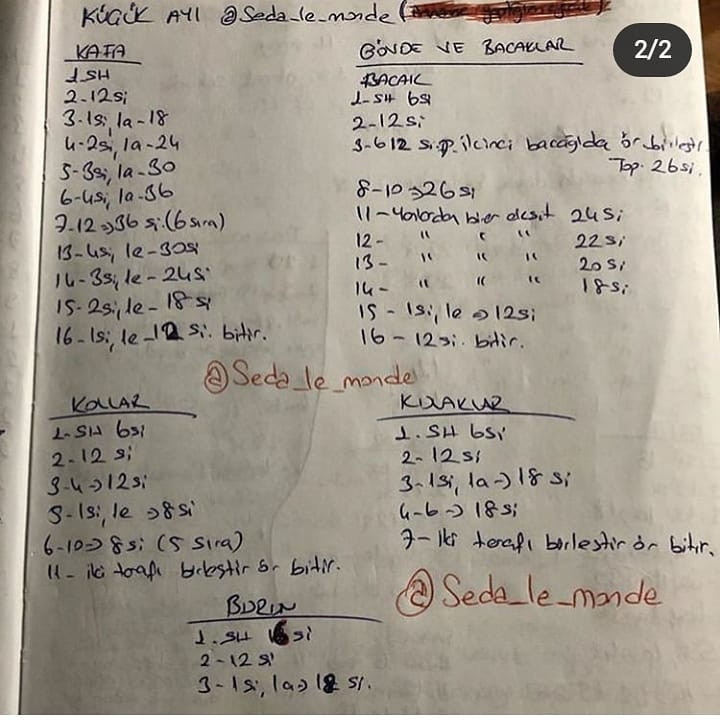 KÜÇÜK AYI @Seda_le_monde (
2/2
KAFA
1 SH
2-12si
3-1si, 1a-18
4-2si, 1a-24
5-3si, 1a-30
6-4si, 1a-36
7-12 => 36 si. (6 sıra)
13-4si, 1e-30si
14-3si, 1e-24si
15-2si, 1e-18 si
16-1si, 1e-12 si. bitir.
GÖVDE VE BACAKLAR
BACAK
1-SH 6si
2-12si
3-6 12 si.p. ikinci bacağıda ör birleştir.
Top. 26si.
8-10 => 26 si
11-Yanlardan birer eksilt 24 si
12- " " " 22 si
13- " " " 20 si
14- " " " 18 si
15 - 1si, 1e => 12si
16 - 12si. bitir.
@Seda_le_monde
KOLLAR
1-SH 6si
2-12 si
3-4 => 12si
5-1si, 1e => 8si
6-10 => 8si (5 sıra)
11- iki tarafı birleştir ör bitir.
KULAKLAR
1. SH 6si
2-12si
3-1si, 1a -> 18 si
4-6 -> 18si
7- İki tarafı birleştir ör bitir.
@Seda_le_monde
BURUN
1. SH 6si
2-12 si
3-1si, 1a => 18 si.